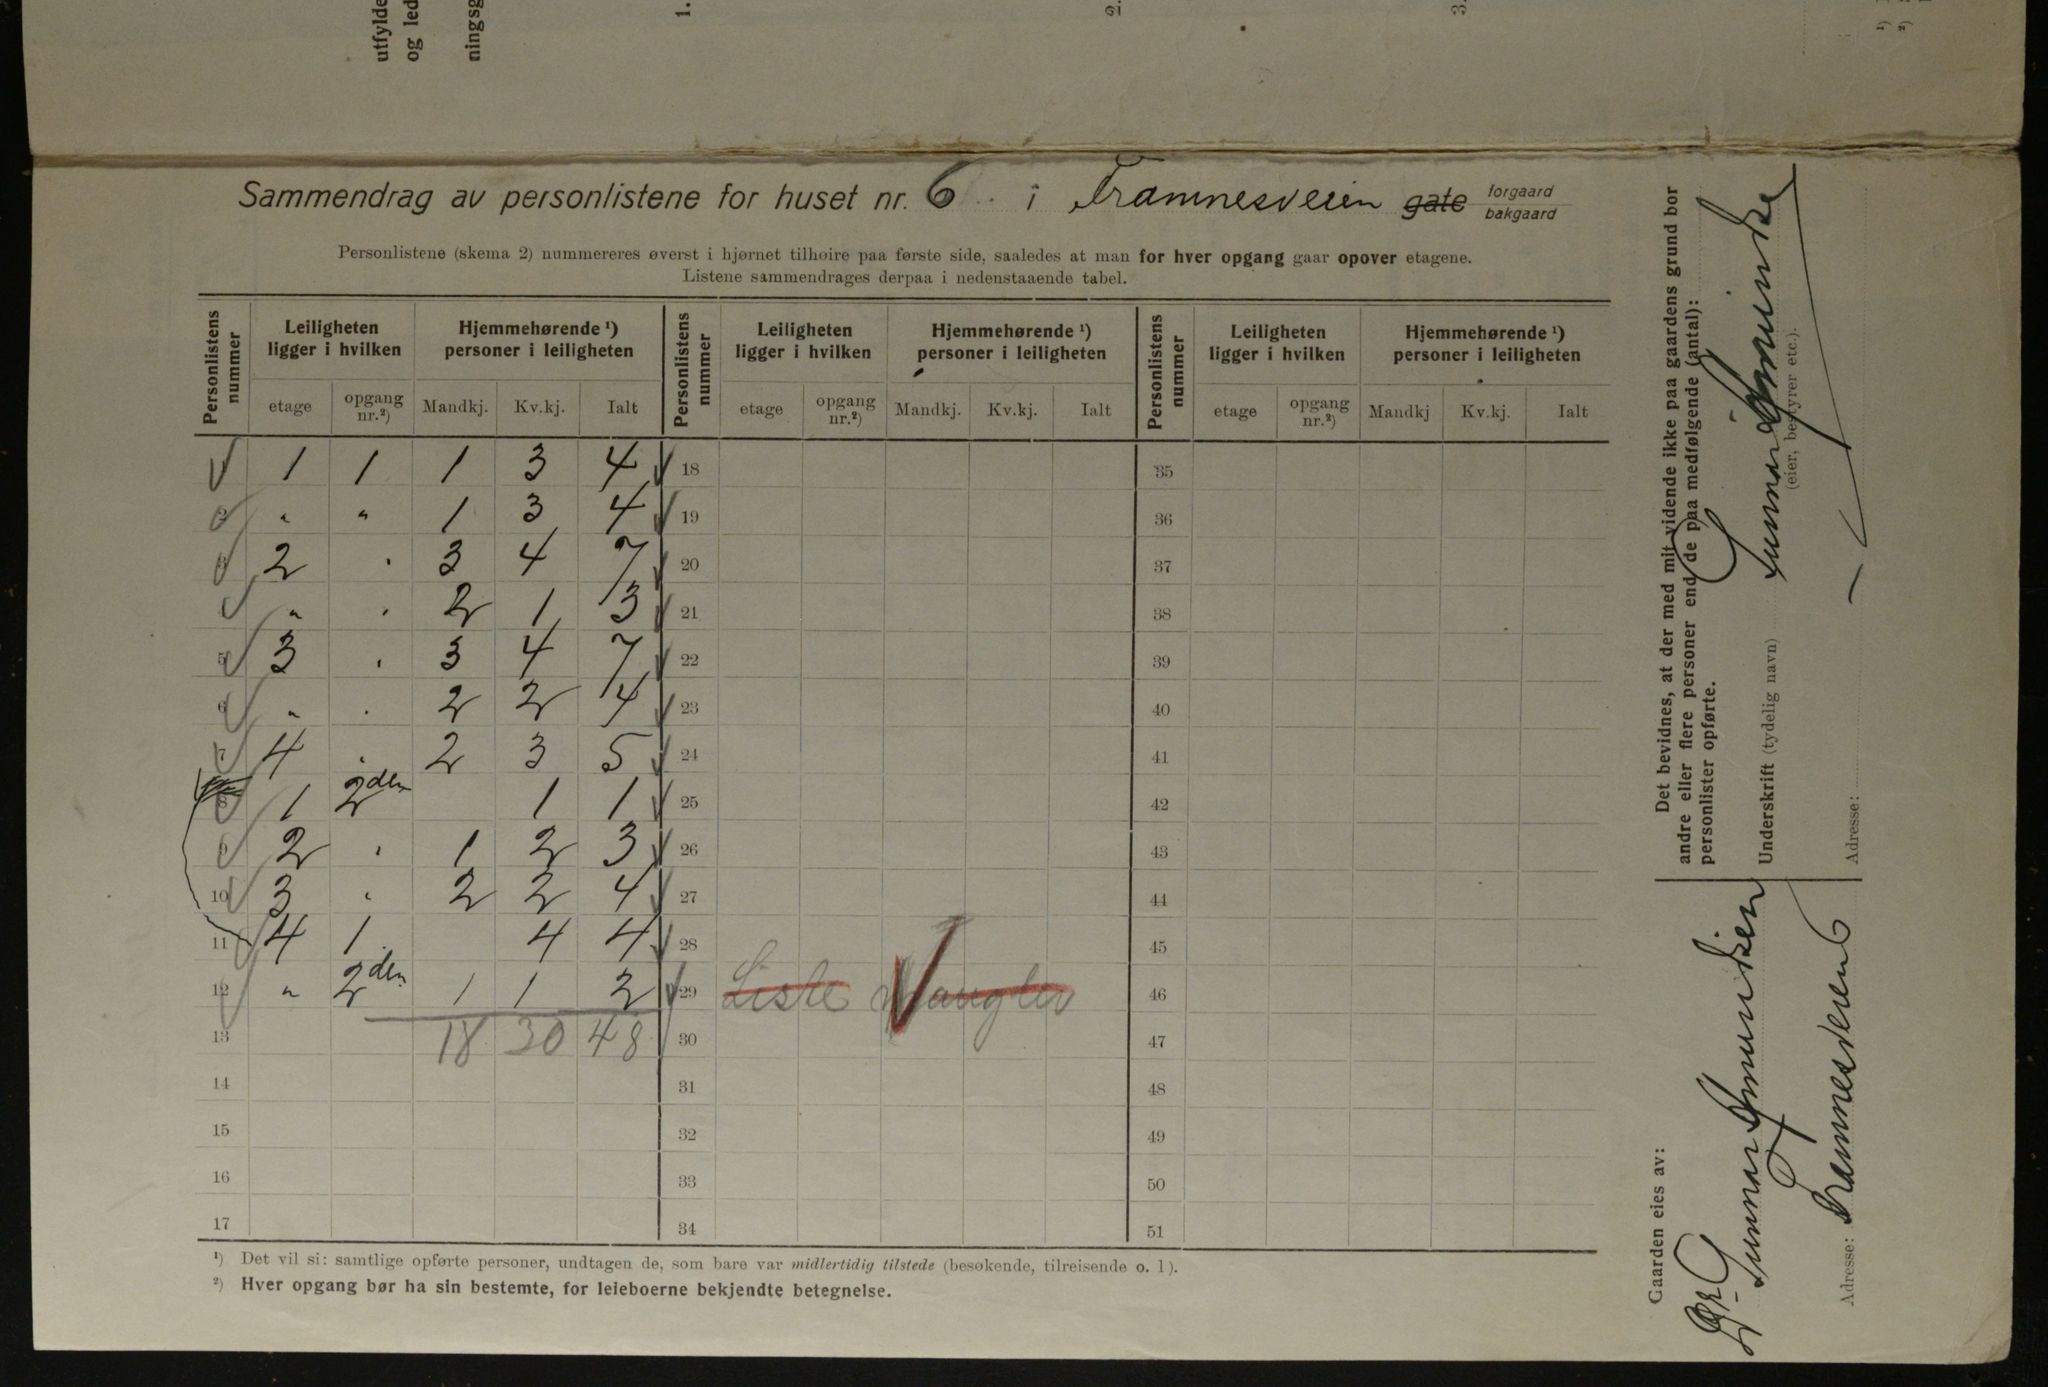 utfylde
og led
ningsg
1.
2.
3.
¹)
²)
Sammendrag av personlistene for huset nr. 6 i Framnesveien gate forgaard
bakgaard
Personlistene (skema 2) nummereres øverst i hjørnet tilhøire paa første side, saaledes at man for hver opgang gaar opover etagene.
Listene sammendrages derpaa i nedenstaaende tabel.
Personlistens nummer Leiligheten ligger i hvilken Hjemmehørende ¹) personer i leiligheten Personlistens nummer Leiligheten ligger i hvilken Hjemmehørende ¹) personer i leiligheten Personlistens nummer Leiligheten ligger i hvilken Hjemmehørende ¹) personer i leiligheten
etage opgang nr.²) Mandkj. Kv.kj. Ialt etage opgang nr.²) Mandkj. Kv.kj. Ialt etage opgang nr.²) Mandkj Kv.kj. Ialt
1 1 1 3 4 18 35
2 " " 1 3 4 19 36
3 2 " 3 4 7 20 37
" " 2 1 3 21 38
5 3 " 3 4 7 22 39
6 " " 2 2 4 23 40
7 4 " 2 3 5 24 41
8 1 2den 1 1 25 42
9 2 " 1 2 3 26 43
10 3 " 2 2 4 27 44
11 4 1 4 4 28 45
12 " 2den 1 1 2 29 Liste Mangler 46
13 18 30 48 30 47
14 31 48
15 32 49
16 33 50
17 34 51
¹) Det vil si: samtlige opførte personer, undtagen de, som bare var midlertidig tilstede (besøkende, tilreisende o. l).
²) Hver opgang bør ha sin bestemte, for leieboerne bekjendte betegnelse.
Gaarden eies av:
Dr. Gunnar Gmundsen
Adresse: Framnesveien 6
Det bevidnes, at der med mit vidende ikke paa gaardens grund bor
andre eller flere personer end de paa medfølgende (antal):
personlister opførte.
Underskrift (tydelig navn) Gunnar
(eier, bestyrer etc.).
Adresse: